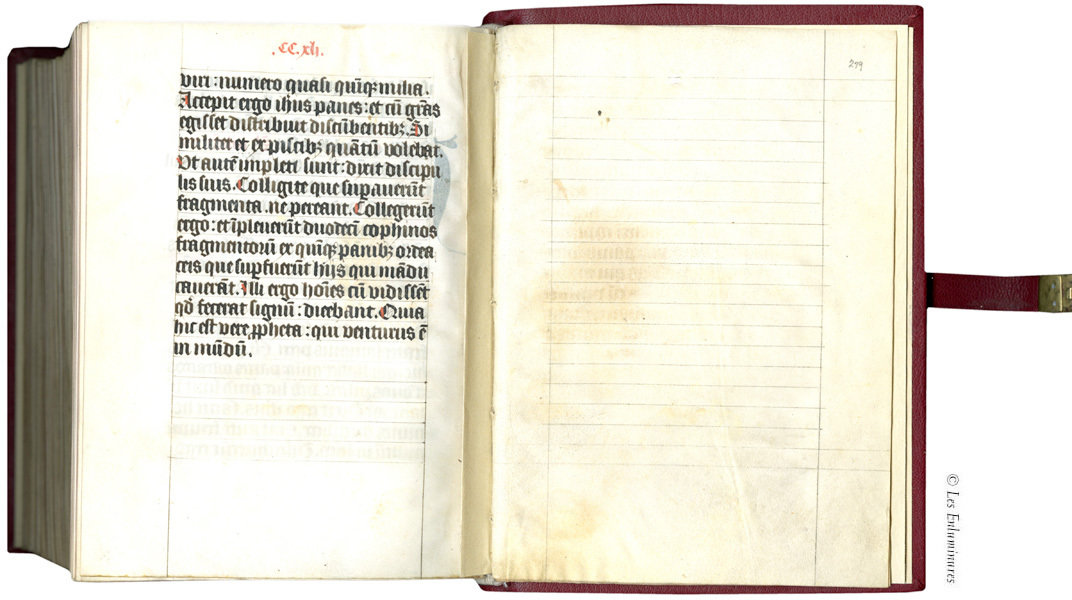 .CC.xli.
viri : numero quasi quīqȝ milia.
Accepit ergo ih̄us panes : et cū gr̄as
egisset distribuit discūbentibȝ. Si
militer et ex piscibȝ quātū volebat.
Vt autē impleti sunt : dixit discipu
lis suis. Colligite que suꝑauerūt
fragmenta. ne pereant. Collegerūt
ergo : et īpleuerūt duodecī cophinos
fragmentorū ex quīqȝ panibȝ ordea
ceis que suꝑfuerūt hijs qui mādu
cauerāt. Illi ergo hoīes cū vidissēt
qd̓ fecerat signū : dicebant. Quia
hic est vere ꝓpheta : qui venturus ē
in mūdū.
279
© Les Enluminures